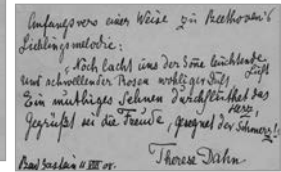 Anfangsvers einer Weise zu Beethoven's
Lieblingsmelodie:
"Noch lacht uns der Sonne leuchtende
und schwellender Rosen wohliger Duft, Luft
Ein muthiges Sehnen durchfluthet das
Herz,
Gegrüßt sei die Freude, gesegnet der Schmerz!"
Therese Dahn
Bad Gastein 11 VIII 08.